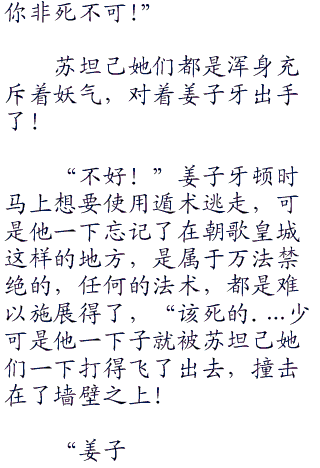 你非死不可！”
苏坦己她们都是浑身充
斥着妖气，对着姜子牙出手
了！
“不好！”姜子牙顿时
马上想要使用遁术逃走，可
是他一下忘记了在朝歌皇城
这样的地方，是属于万法禁
绝的，任何的法术，都是难
以施展得了，“该死的....少
可是他一下子就被苏坦己她
们一下打得飞了出去，撞击
在了墙壁之上！
“姜子